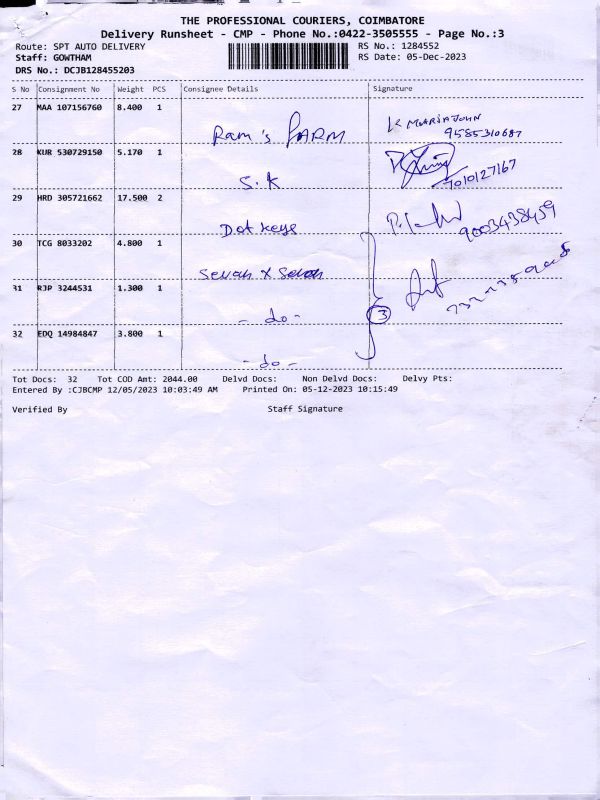 THE PROFESSIONAL COURIERS, COIMBATORE
Delivery Runsheet - CMP - Phone No.:0422-3505555 - Page No.:3
Route: SPT AUTO DELIVERY
RS No.: 1284552
Staff: GOWTHAM
RS Date: 05-Dec-2023
DRS No.: DCJB128455203
S No Consignment No Weight PCS Consignee Details Signature
27 MAA 107156760 8.400 1
Ram's FARM
9585310687
28 KUR 530729150 5.170 1
S.K
7010127167
29 HRD 305721662 17.500 2
Dot keys
9003438459
30 TCG 8033202 4.800 1
31 RJP 3244531 1.300 1
- do -
3
32 EDQ 14984847 3.800 1
- do -
Tot Docs: 32 Tot COD Amt: 2044.00 Delvd Docs: Non Delvd Docs: Delvy Pts:
Entered By :CJBCMP 12/05/2023 10:03:49 AM Printed On: 05-12-2023 10:15:49
Verified By Staff Signature